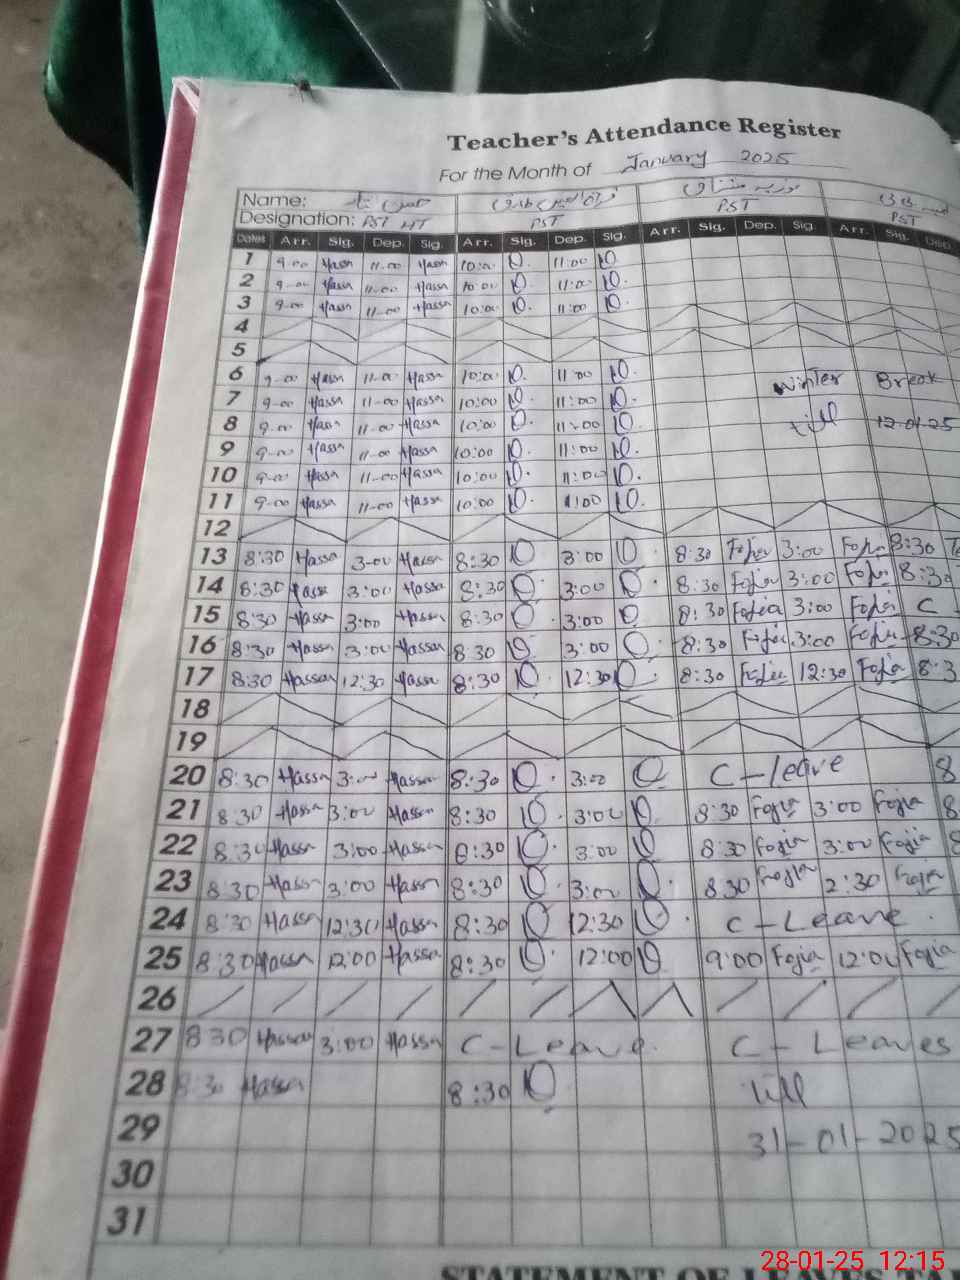 Teacher's Attendance Register
For the Month of January 2025
Name:
Designation: PST HT PST PST PST
Dates Arr. Sig. Dep. Sig. Arr. Sig. Dep. Sig. Arr. Sig. Dep. Sig. Arr. Sig. Dep
1 9-00 Hassn 11-00 Hassn 10:00 11:00
2 9-00 Hassn 11-00 Hassn 10:00 11:00
3 9-00 Hassn 11-00 Hassn 10:00 11:00
4
5
6 9-00 Hassn 11-00 Hassn 10:00 11:00 Winter Break
7 9-00 Hassn 11-00 Hassn 10:00 11:00
8 9-00 Hassn 11-00 Hassn 10:00 11:00 till 12-01-25
9 9-00 Hassn 11-00 Hassn 10:00 11:00
10 9-00 Hassn 11-00 Hassn 10:00 11:00
11 9-00 Hassn 11-00 Hassn 10:00 11:00
12
13 8:30 Hassn 3-00 Hassn 8:30 3:00 8:30 Fojia 3:00 Fojia 8:30
14 8:30 Hassn 3:00 Hassn 8:30 3:00 8:30 Fojia 3:00 Fojia 8:30
15 8:30 Hassn 3:00 Hassn 8:30 3:00 8:30 Fojia 3:00 Fojia C -
16 8:30 Hassn 3:00 Hassn 8:30 3:00 8:30 Fojia 3:00 Fojia 8:30
17 8:30 Hassan 12:30 Hassn 8:30 12:30 8:30 Fojia 12:30 Fojia 8:3
18
19
20 8:30 Hassn 3:00 Hassn 8:30 3:00 C-leave 8
21 8:30 Hassn 3:00 Hassn 8:30 3:00 8:30 Fojia 3:00 Fojia 8
22 8:30 Hassn 3:00 Hassn 8:30 3:00 8:30 Fojia 3:00 Fojia 8
23 8:30 Hassn 3:00 Hassn 8:30 3:00 8:30 Fojia 2:30 Fojia
24 8:30 Hassn 12:30 Hassn 8:30 12:30 C-Leave.
25 8:30 Hassn 12:00 Hassn 8:30 12:00 9:00 Fojia 12:00 Fojia
26
27 8:30 Hassan 3:00 Hassn C-Leave. C-Leaves
28 8:30 Hassn 8:30 till
29 31-01-2025
30
31
STATEMENT OF LEAVES TA
28-01-25 12:15